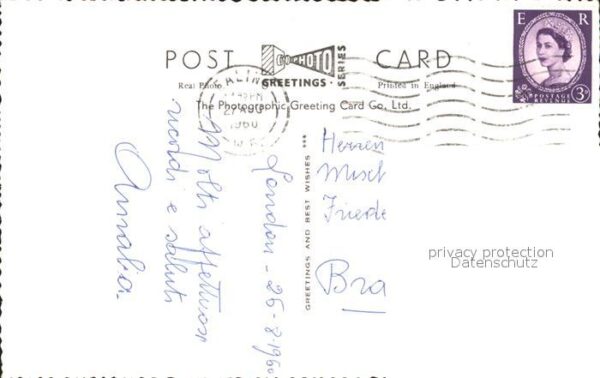 POST CARD
PHOTO
GREETINGS
SERIES
Real Photo
Printed in England
The Photographic Greeting Card Co. Ltd.
E R
POSTAGE
REVENUE
3D
EALING
27 AUG
1960
London - 25-8-1960
Molti affettuosi
ricordi e saluti
GREETINGS AND BEST WISHES ***
Herren
Bra
privacy protection
Datenschutz